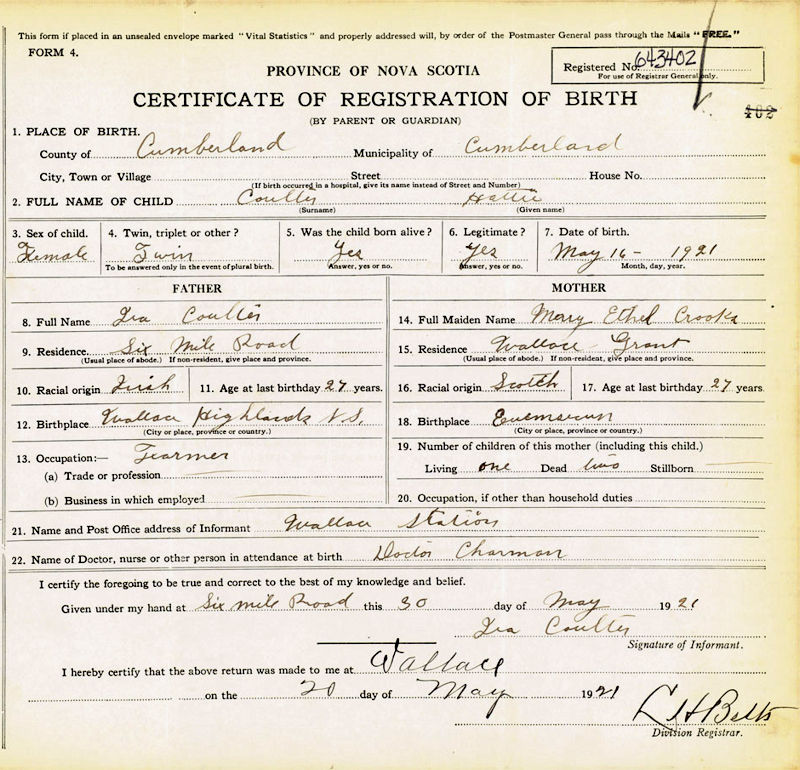 This form if placed in an unsealed envelope marked "Vital Statistics" and properly addressed will, by order of the Postmaster General pass through the Mails "FREE."
FORM 4.
Registered No. 643402
For use of Registrar General only.
PROVINCE OF NOVA SCOTIA
CERTIFICATE OF REGISTRATION OF BIRTH
402
(BY PARENT OR GUARDIAN)
1. PLACE OF BIRTH.
County of Cumberland Municipality of Cumberland
City, Town or Village Street House No.
(If birth occurred in a hospital, give its name instead of Street and Number)
2. FULL NAME OF CHILD Coulter Hattie
(Surname) (Given name)
3. Sex of child. 4. Twin, triplet or other? 5. Was the child born alive? 6. Legitimate? 7. Date of birth.
Female Twin Yes Yes May 16- 1921
To be answered only in the event of plural birth. Answer, yes or no. Answer, yes or no. Month, day, year.
FATHER
8. Full Name Ira Coulter
9. Residence Six Mile Road
(Usual place of abode.) If non-resident, give place and province.
10. Racial origin Irish 11. Age at last birthday 27 years.
12. Birthplace Wallace Highlands N.S.
(City or place, province or country.)
13. Occupation:— Fearmer
(a) Trade or profession
(b) Business in which employed
MOTHER
14. Full Maiden Name Mary Ethel Crooks
15. Residence Wallace Grant
(Usual place of abode.) If non-resident, give place and province.
16. Racial origin Scotch 17. Age at last birthday 27 years.
18. Birthplace
(City or place, province or country.)
19. Number of children of this mother (including this child.)
Living one Dead two Stillborn
20. Occupation, if other than household duties
21. Name and Post Office address of Informant Wallace Station
22. Name of Doctor, nurse or other person in attendance at birth Doctor Charman
I certify the foregoing to be true and correct to the best of my knowledge and belief.
Given under my hand at Six mile Road this 30 day of May 1921
Ira Coulter
Signature of Informant.
I hereby certify that the above return was made to me at Wallace
on the 20 day of May 1921
L H Betts
Division Registrar.